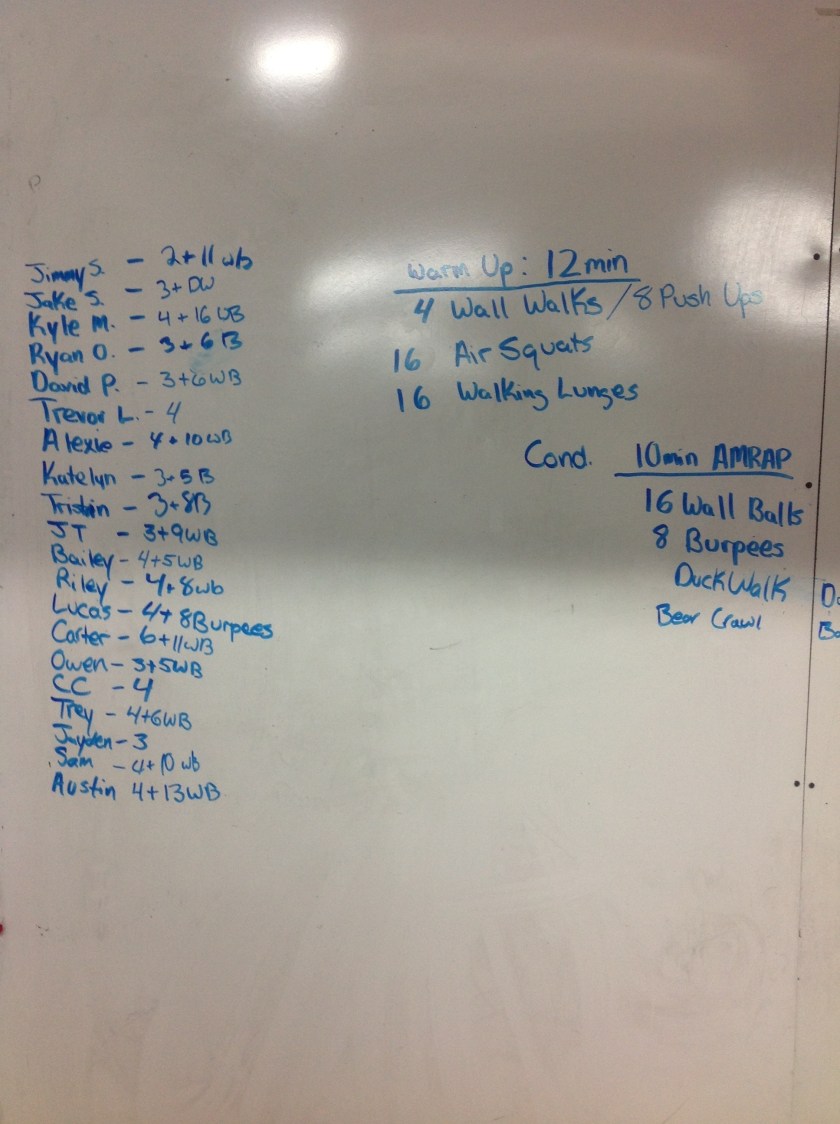 Jimmy S. - 2+11 wb
Jake S. - 3+DW
Kyle M. - 4+16 WB
Ryan O. - 3+6 B
David P. - 3+6WB
Trevor L. - 4
Alexie - 4+10WB
Katelyn - 3+5B
Tristin - 3+8B
JT - 3+9WB
Bailey - 4+5WB
Riley - 4+8wb
Lucas - 4+8Burpees
Carter - 6+11WB
Owen - 3+5WB
CC - 4
Trey - 4+6WB
Jayden - 3
Sam - 4+10 wb
Austin 4+13WB
Warm Up: 12min
4 Wall Walks / 8 Push Ups
16 Air Squats
16 Walking Lunges
Cond. 10min AMRAP
16 Wall Balls
8 Burpees
Duck Walk
Bear Crawl